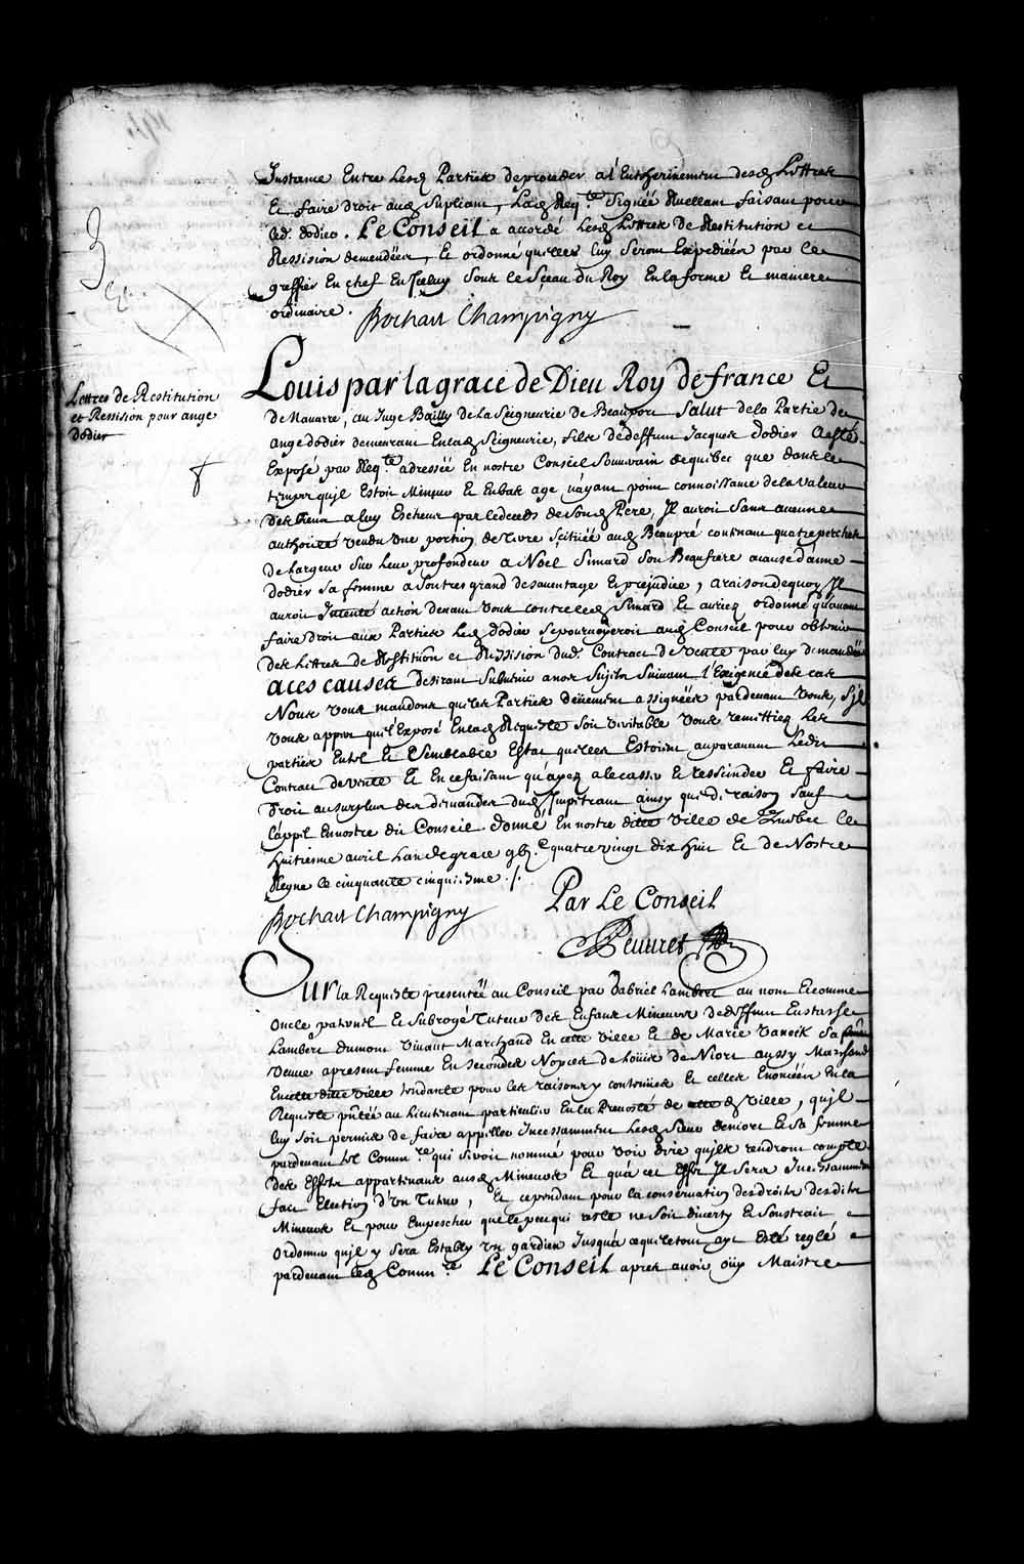 Instance Entre Lesd Parties de proceder a l'Entherinement desd Lettres
Et faire droit aud Supliant, Lad Req.te Signée Ruellam faisant pour
led. dodier. Le Conseil a accordé Lesd Lettres de Restitution et
Ressision demandées, Et ordonné qu'elles luy seront Expediées par le
greffier En chef En Iceluy Soubs le Sceau du Roy En la forme Et maniere
ordinaire. Bochart Champigny
Lettres de Restitution
et Ressision pour ange
dodier
Louis par la grace de Dieu Roy de france Et
de Navarre, au Juge Bailly de La Seigneurie de Beaupré Salut de la Partie de
ange dodier demeurant En lad Seigneurie, filz de deffunt Jacques dodier a esté
Exposé par Req.te adressée En nostre Conseil Souverain de quebec que dans le
temps qu'il Estoit Mineur Et En bas age n'ayant point connoissance de la Valeur
des biens a luy Escheus par le deceds de Sond Pere, Il auroit Sans aucune
authorité vendu une portion de terre Scituée aud Beaupré contenant quatre perches
de Largeur Sur Leur profondeur a Noel Simard Son Beaufrere a cause d'anne
dodier Sa femme a Son tres grand desavantage Et prejudice, a raison de quoy Il
auroit Intenté action devant vous contre led Simard Et auriez ordonné qu'avant
faire droit aux Parties Led dodier Se pourvoyeroit aud Conseil pour obtenir
des Lettres de Restitution et Ressision dud. Contract de vente par luy demandées
A ces causes desirant Subvenir a nos Sujets Suivant l'Exigence des cas
Nous vous mandons que les Parties deuement assignées pardevant vous, S'il
vous appert que l'Exposé En lad Requeste Soit veritable vous remettiez Les
parties En tel Et Semblable Estat qu'elles Estoient auparavant Ledit
Contract de vente Et En ce faisant qu'ayez a le casser Et rescinder Et faire
droit au surplus des demandes dud Impetrant ainsy que de raison Sauf
l'appel En nostre dit Conseil. Donné En nostre ditte ville de Quebec le
huitiesme avril L'an de grace gbj.c quatre vingt dix huit Et de Nostre
Regne le cinquante cinquiesme ./.
Par Le Conseil
Bochart Champigny
Peuvret
Sur la Requeste presentée au Conseil par Gabriel Lambert au nom Et comme
Oncle paternel Et Subrogé Tuteur des Enfans Mineurs de deffunt Eustasse
Lambert dumont vivant Marchand En cette ville Et de Marie Vanneck Sa
veuve a present femme En Secondes Nopces de Louis de Niort aussy Marchand
En cette ditte ville tendante pour les raisons y contenües Et celles Enoncées En la
Requeste pñtée au Lieutenant particulier En la Prevosté de cetted ville, qu'il
luy soit permis de faire appeller Incessamment Lesd Sieur deniort Et Sa femme
pardevant tel Comm.re qui Seroit nommé pour voir dire qu'ils rendront compte
des Effets appartenans ausd Mineurs Et qu'a cet Effet Il Sera Incessamment
fait Election d'un Tuteur, Et cependant pour la conservation des droits desdits
Mineurs Et pour Empescher que le peu qui reste ne Soit diverty Et Soustrait
Ordonner qu'il y Sera Estably un gardien Jusqu'a ce que le tout ayt Esté reglé
pardevant led Comm.re Le Conseil apres avoir oüy Maistre